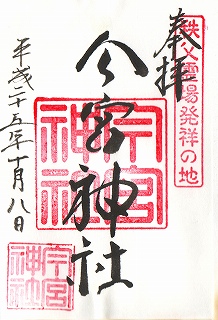 奉拝
秩父霊場発祥の地
今宮神社
今宮神社
平成二十五年十月八日
今宮神社